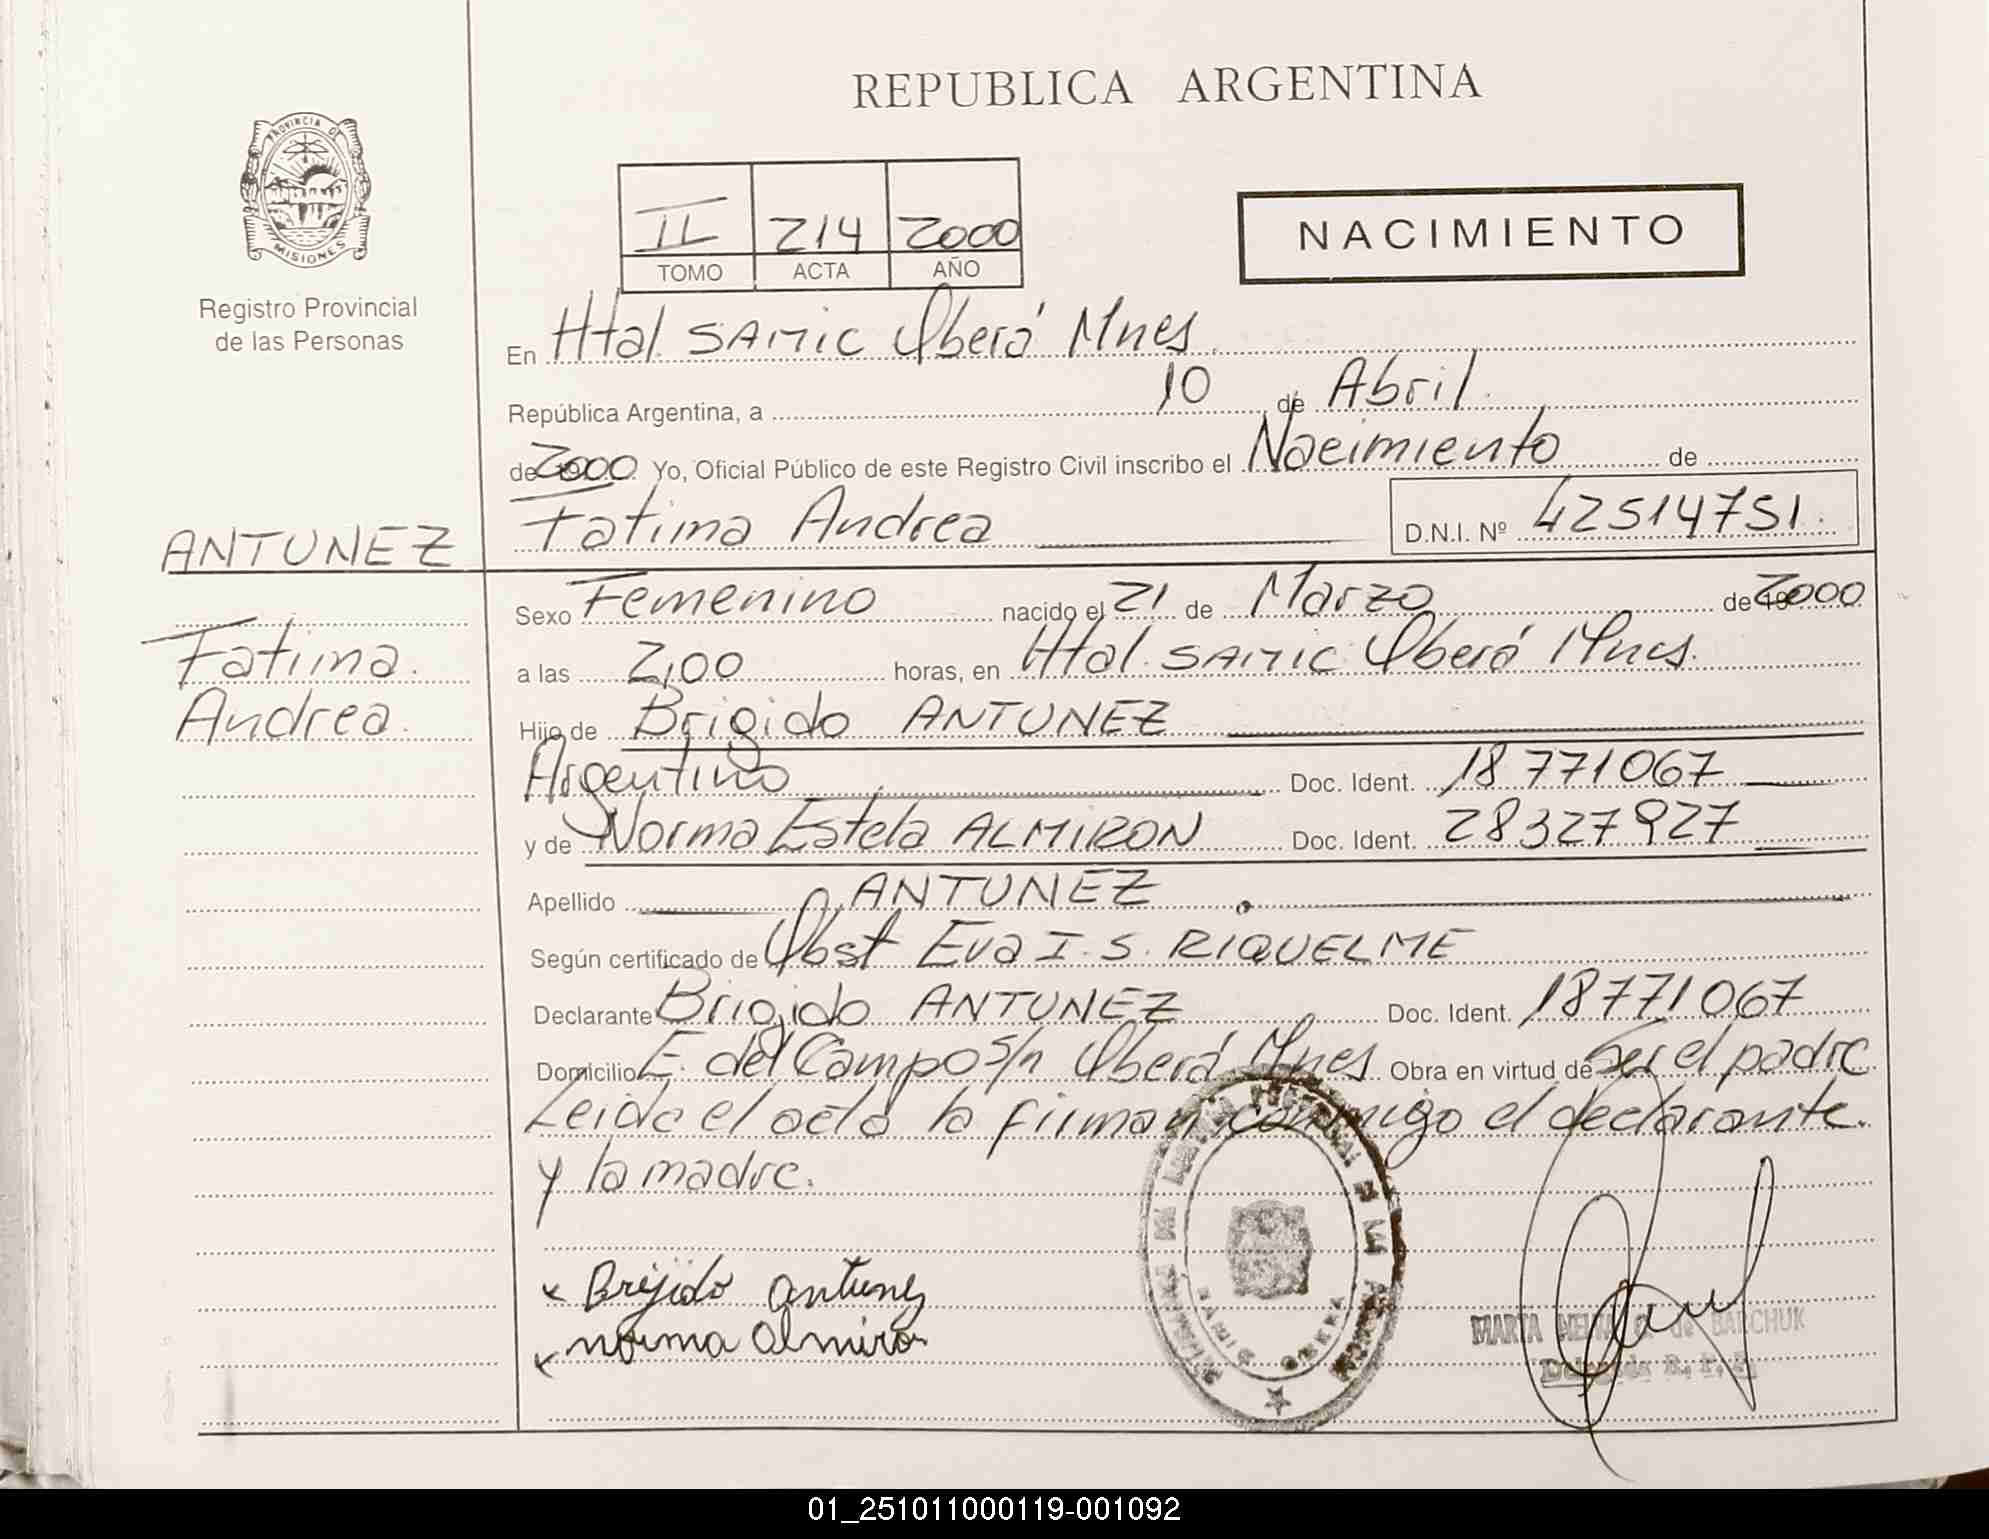 REPUBLICA ARGENTINA
PROVINCIA DE
MISIONES
Registro Provincial
de las Personas
II 214 2000
TOMO ACTA AÑO
NACIMIENTO
En Htal. SAMIC Oberá Mnes.
República Argentina, a 10 de Abril.
de 2000 Yo, Oficial Público de este Registro Civil inscribo el Nacimiento de
Fatima Andrea D.N.I. Nº 42514751.
ANTUNEZ
Fatima.
Andrea.
Sexo Femenino nacido el 21 de Marzo de 2000
a las 2,00 horas, en Htal. SAMIC Oberá Mnes.
Hijo de Brigido ANTUNEZ
Argentino Doc. Ident. 18771067
y de Norma Estela ALMIRON Doc. Ident. 28327927
Apellido ANTUNEZ
Según certificado de Obst Eva I. S. RIQUELME
Declarante Brigido ANTUNEZ Doc. Ident. 18771067
Domicilio E. del Campo s/n Oberá Mnes Obra en virtud de Ser el padre
Leida el acta la firman conmigo el declarante.
y la madre.
x Brijido Antunez
x norma Almiron
SAMIC OBERA
MARTA de BARCHUK
Delegada R. P. P.
01_251011000119-001092